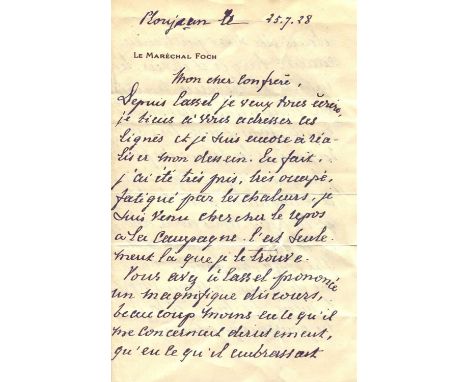 Ploujean le 25.7.28
LE MARÉCHAL FOCH
Mon cher Confrère,
Depuis Cassel je veux vous écrire,
je tiens à vous adresser ces
lignes et je suis encore à réa-
liser mon dessein. En fait.
j'ai été très pris, très occupé,
fatigué par les chaleurs, je
suis venu chercher le repos
à la campagne. C'est seule
ment là que je le trouve.
Vous avez à Cassel prononcé
un magnifique discours,
beaucoup moins en ce qu'il
me concernait directement,
qu'en ce qu'il embrassait